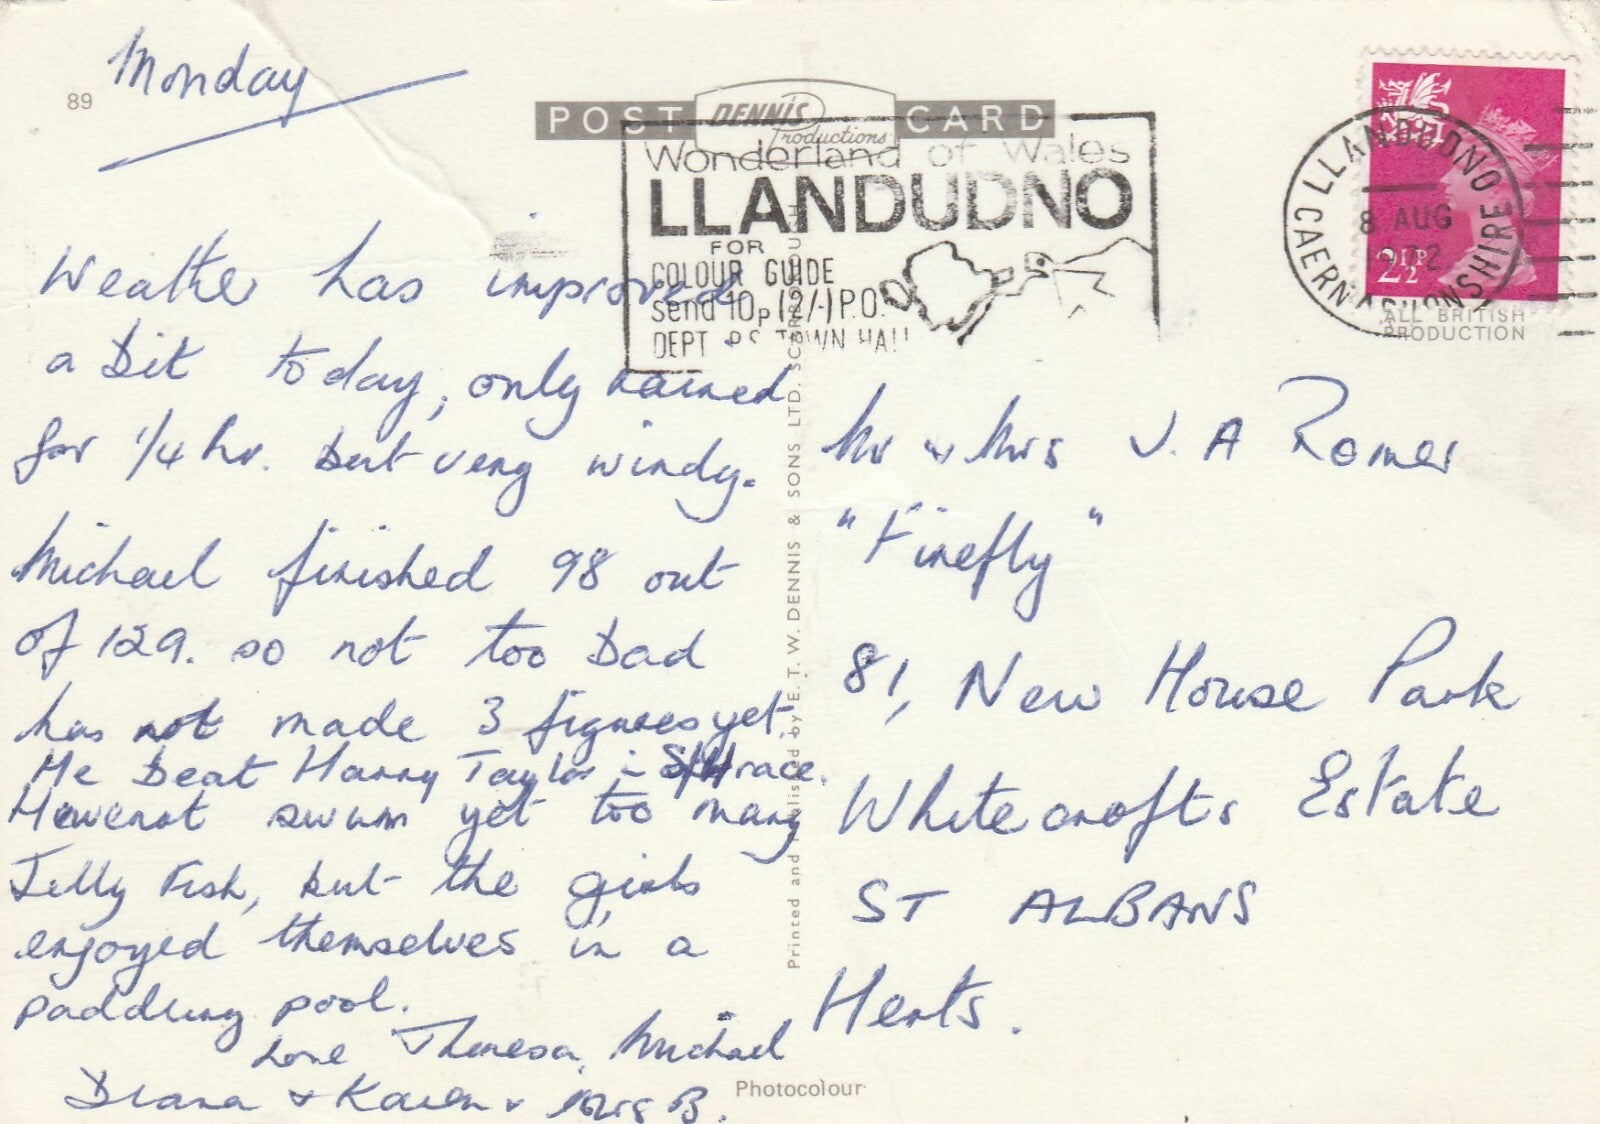 Monday
Weather has improved
a bit today, only rained
for 1/4 hr. but very windy.
Michael finished 98 out
of 129. so not too bad
has not made 3 figures yet.
He beat Harry Taylor in race.
Havenot swum yet too many
Jelly Fish, but the girls
enjoyed themselves in a
paddling pool.
Love Theresa, Michael
Diana & Karen & Mrs B.
89
POST CARD
DENNIS
Productions
Wonderland of Wales
LLANDUDNO
FOR
COLOUR GUIDE
Send 10p (2/-) P.O.
DEPT P.S. TOWN HALL
LLANDUDNO
8 AUG
1972
CAERNARVONSHIRE
2½P
ALL BRITISH
PRODUCTION
Mr & Mrs V. A Romer
"Firefly"
81, New House Park
Whitecrofts Estate
ST ALBANS
Herts.
Printed and Published by E. T. W. DENNIS & SONS LTD. SCARBOROUGH
Photocolour